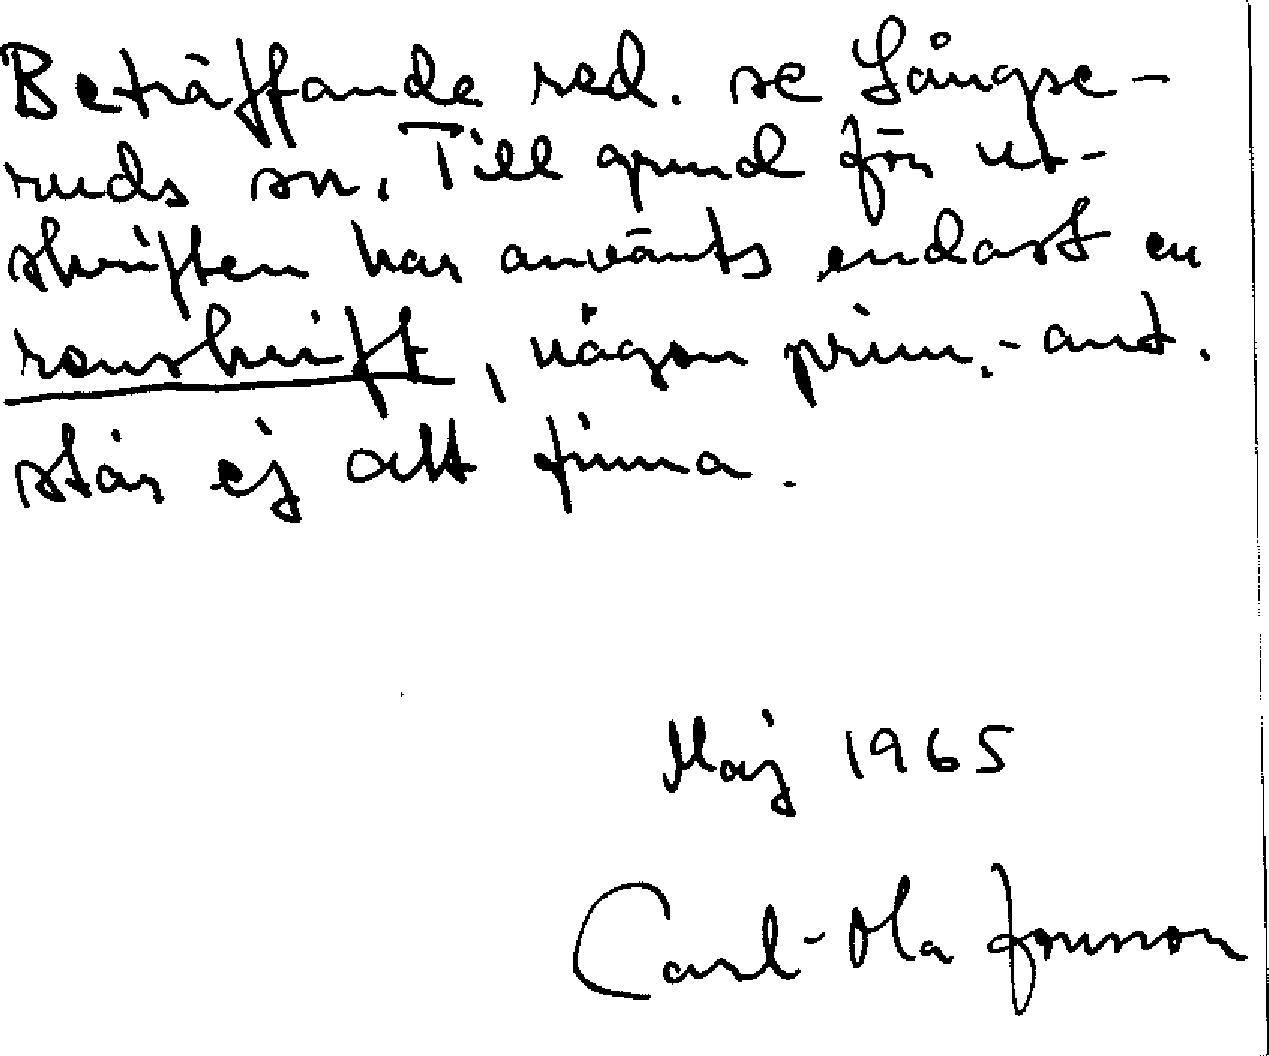 Beträffande red. se Långse-
ruds sn. Till grund för ut-
skriften har använts endast en
renskrift, någon prim.-ant.
står ej att finna.
Maj 1965
Carl-Ola Jonsson